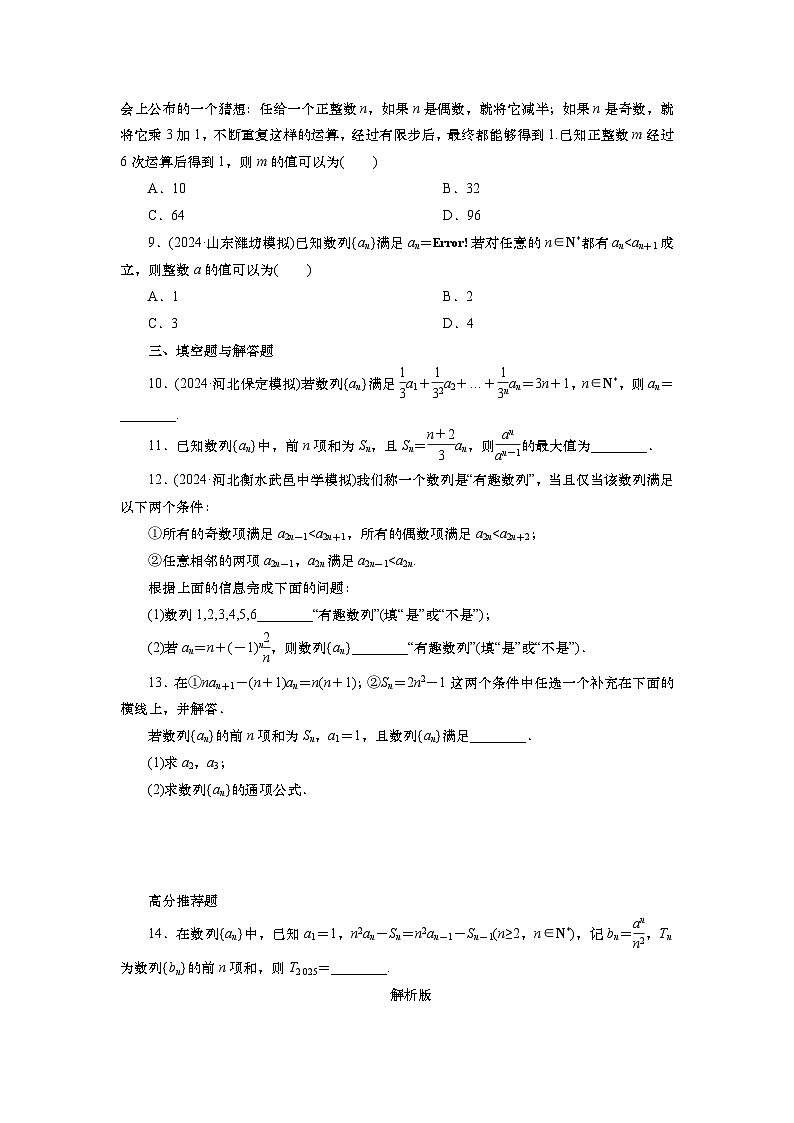 会上公布的一个猜想：任给一个正整数 n，如果 n 是偶数，就将它减半；如果 n 是奇数，就
将它乘 3 加 1，不断重复这样的运算，经过有限步后，最终都能够得到 1.已知正整数 m 经过
6 次运算后得到 1，则 m 的值可以为(　　)
A．10　　B．32
C．64　　D．96
9．(2024·山东潍坊模拟)已知数列{aₙ}满足 aₙ＝Error! 若对任意的 n∈N*都有 aₙ<aₙ₊₁成
立，则整数 a 的值可以为(　　)
A．1　　B．2
C．3　　D．4
三、填空题与解答题
10．(2024·河北保定模拟)若数列{aₙ}满足 1/3 a₁＋1/3² a₂＋…＋1/3ⁿ aₙ＝3n＋1，n∈N*，则 aₙ＝
________.
11．已知数列{aₙ}中，前 n 项和为 Sₙ，且 Sₙ＝(n＋2)/3 aₙ，则 aⁿ/aⁿ⁻¹ 的最大值为________．
12．(2024·河北衡水武邑中学模拟)我们称一个数列是“有趣数列”，当且仅当该数列满足
以下两个条件：
①所有的奇数项满足 a₂ₙ₋₁<a₂ₙ₊₁，所有的偶数项满足 a₂ₙ<a₂ₙ₊₂；
②任意相邻的两项 a₂ₙ₋₁，a₂ₙ 满足 a₂ₙ₋₁<a₂ₙ.
根据上面的信息完成下面的问题：
(1)数列 1,2,3,4,5,6________“有趣数列”(填“是”或“不是”)；
(2)若 aₙ＝n＋(－1)ⁿ 2/n，则数列{aₙ}________“有趣数列”(填“是”或“不是”)．
13．在①naₙ₊₁－(n＋1)aₙ＝n(n＋1)；②Sₙ＝2n²－1 这两个条件中任选一个补充在下面的
横线上，并解答．
若数列{aₙ}的前 n 项和为 Sₙ，a₁＝1，且数列{aₙ}满足________．
(1)求 a₂，a₃；
(2)求数列{aₙ}的通项公式．
高分推荐题
14．在数列{aₙ}中，已知 a₁＝1，n²aₙ－Sₙ＝n²aₙ₋₁－Sₙ₋₁(n≥2，n∈N*)，记 bₙ＝aⁿ/n²，Tₙ
为数列{bₙ}的前 n 项和，则 T₂ ₀₂₅＝________.
解析版